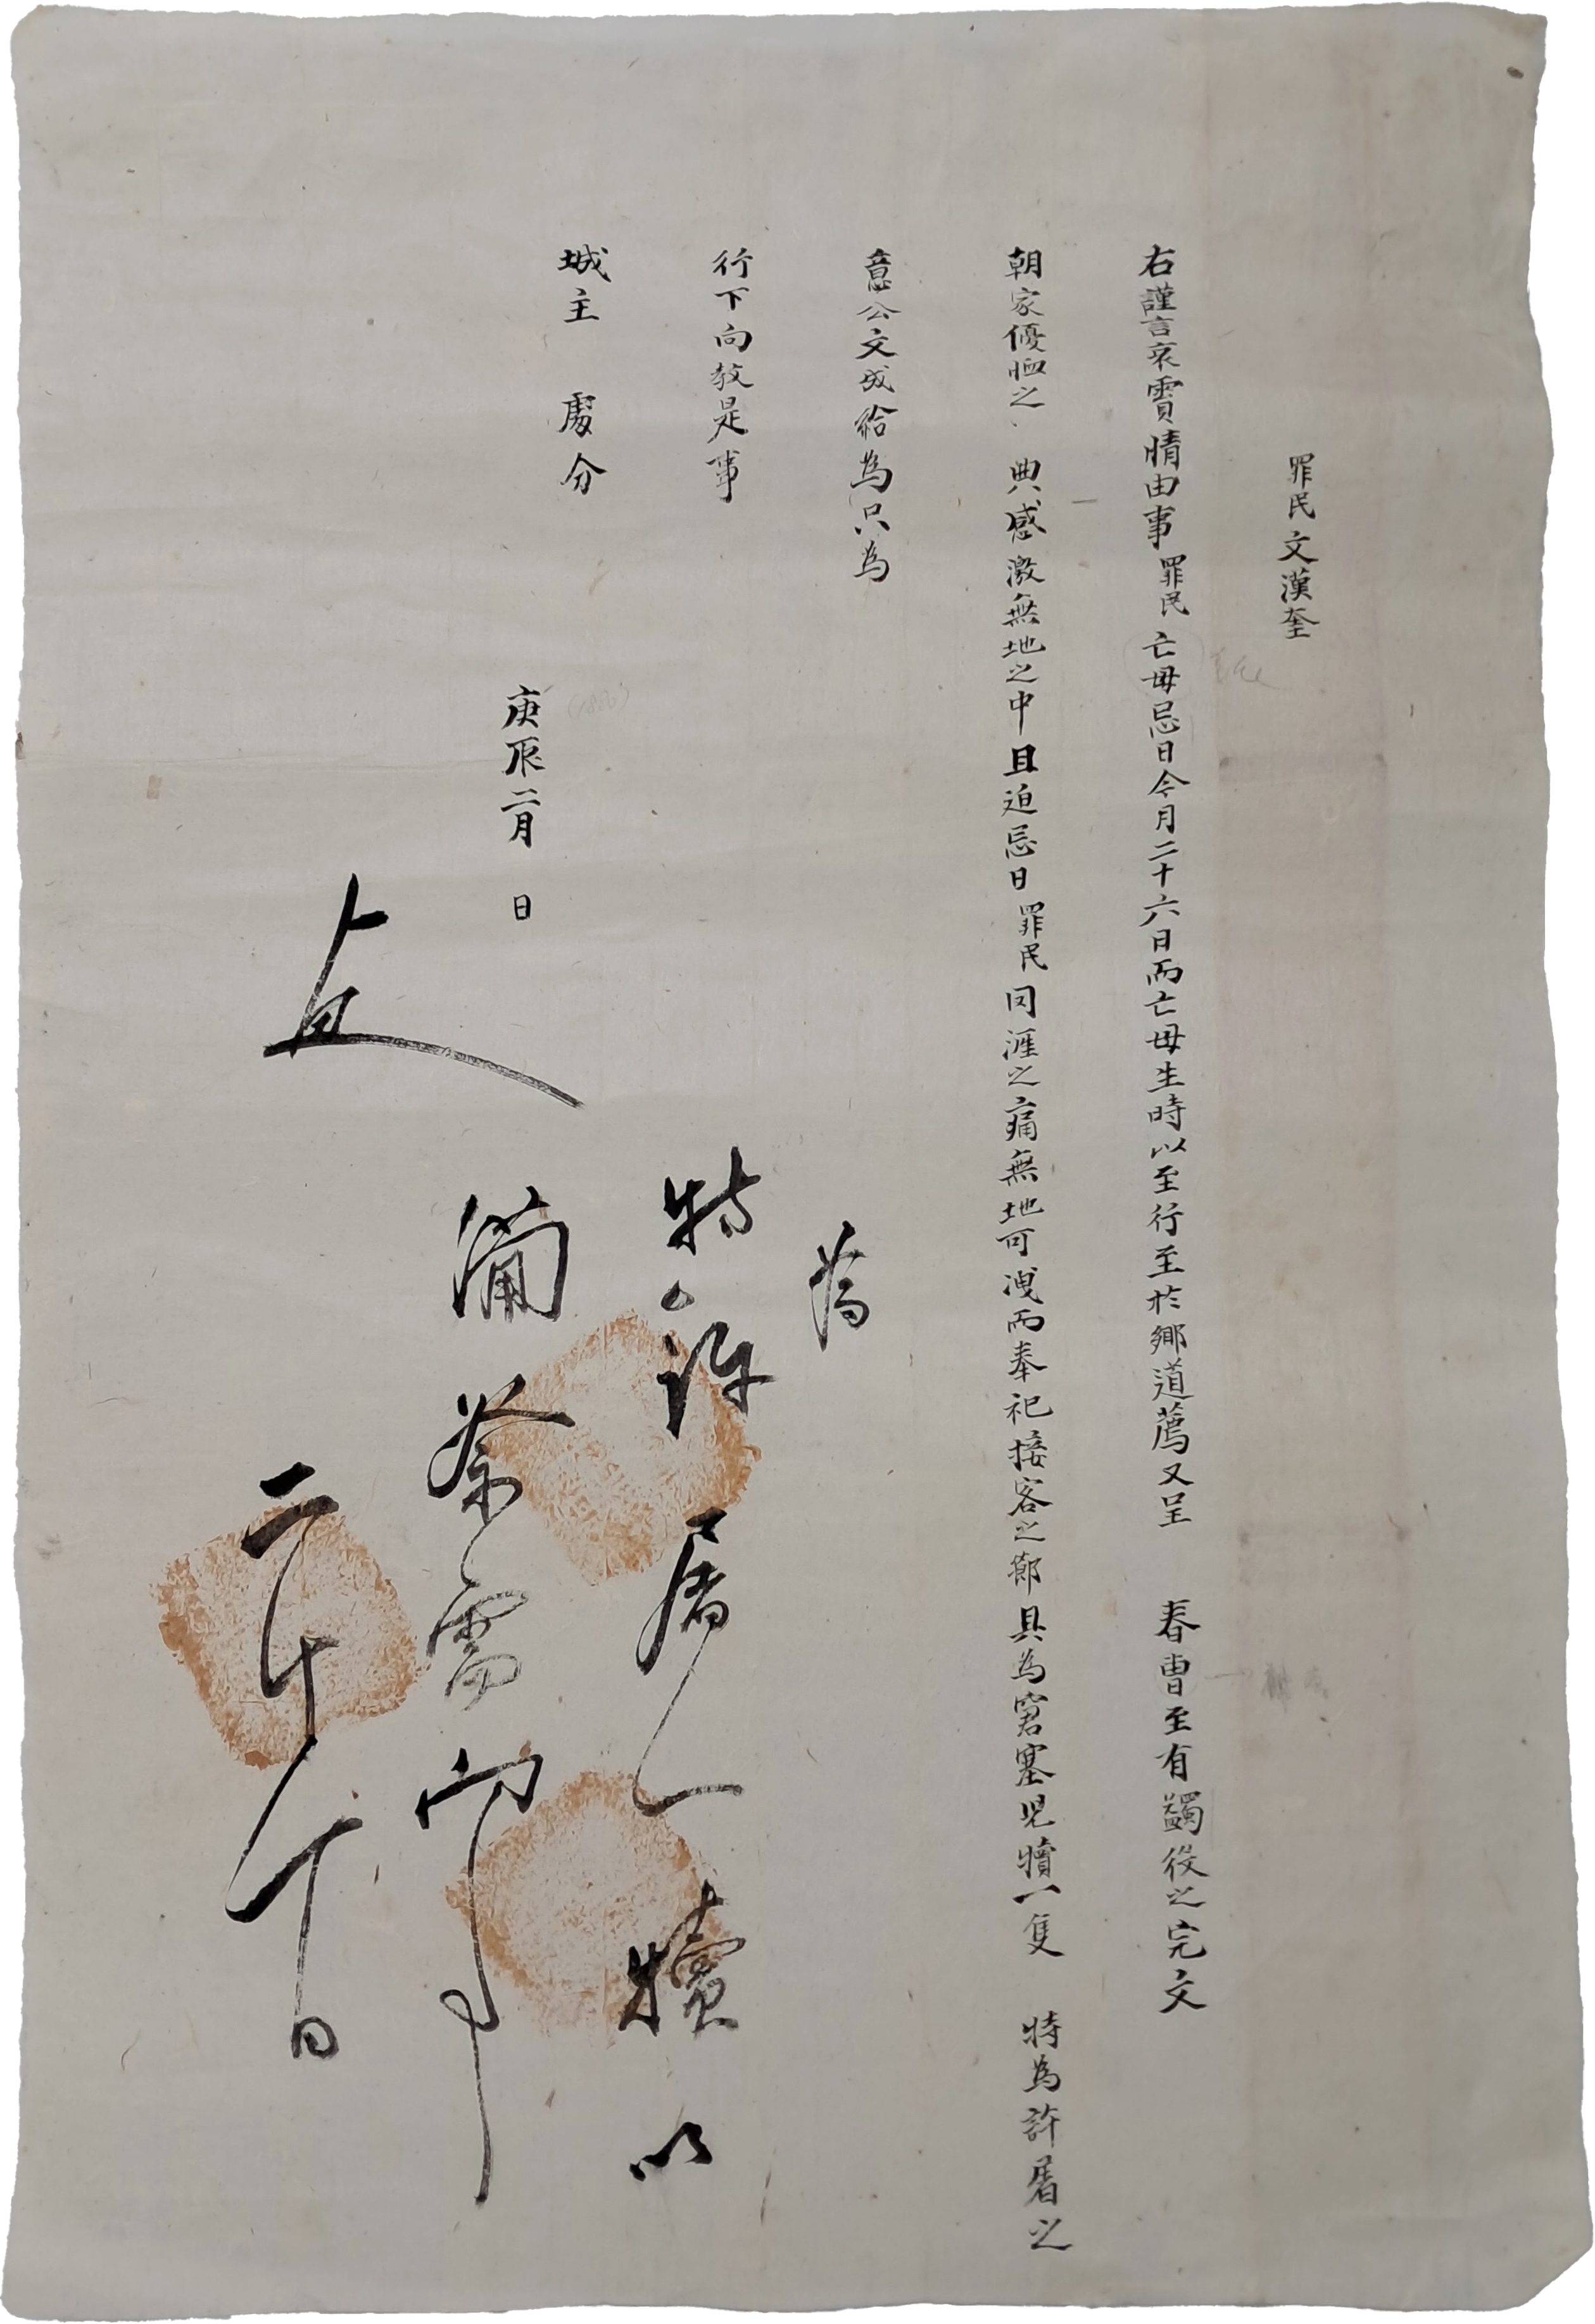 罪民文漢奎
右謹言哀實情由事罪民亡母忌日今月二十六日而亡母生時以至行至於鄉道薦又呈 春曹至有蠲役之完文
朝家優恤之 典感激無地之中且迫忌日罪民罔涯之痛無地可洩而奉祀接客之節具為窘塞児犢一隻 特為許屠之
意公文成給為只為
行下向教是事
城主 處分
庚辰二月 日
為
特許屠一犢以
備祭需事
二十日